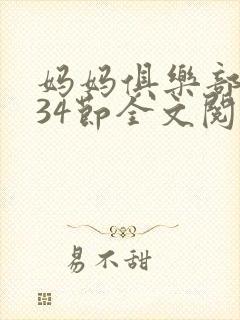 妈妈俱樂部
34節全文閱
易不甜